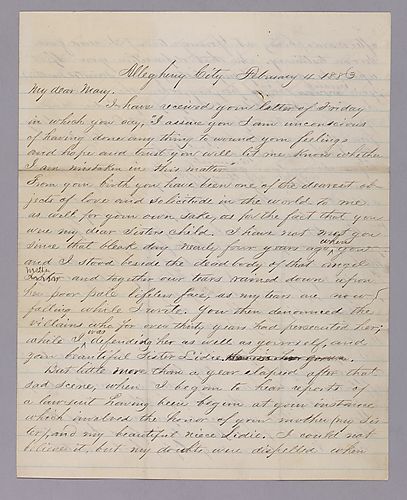 Allegheny City February 4 1883
My dear Mary.
I have received your letter of Friday
in which you say, "I assure you I am unconscious
of having done any thing to wound your feelings
and hope and trust you will let me know whether
I am mistaken in this matter
From your birth you have been one of the dearest ob-
jects of love and solicitude in the world to me
as well for your own sake, as for the fact that you
were my dear Sisters Child. I have not met you
since that bleak day nearly four years ago, when you
and I stood beside the dead body of that angel
Mother and together our tears rained down upon
her poor pale lifeless face, as my tears are now
falling while I write. You then denounced the
villains who for over thirty years had persecuted her;
while I was defending her as well as yourself, and
your beautiful Sister Lidie.
But little more than a year elapsed after that
sad scene, when I began to hear reports of
a law suit having been begun at your instance
which involved the honor of your mother (my Sis-
ter) and my beautiful niece Lidie. I could not
believe it, but my doubts were dispelled when